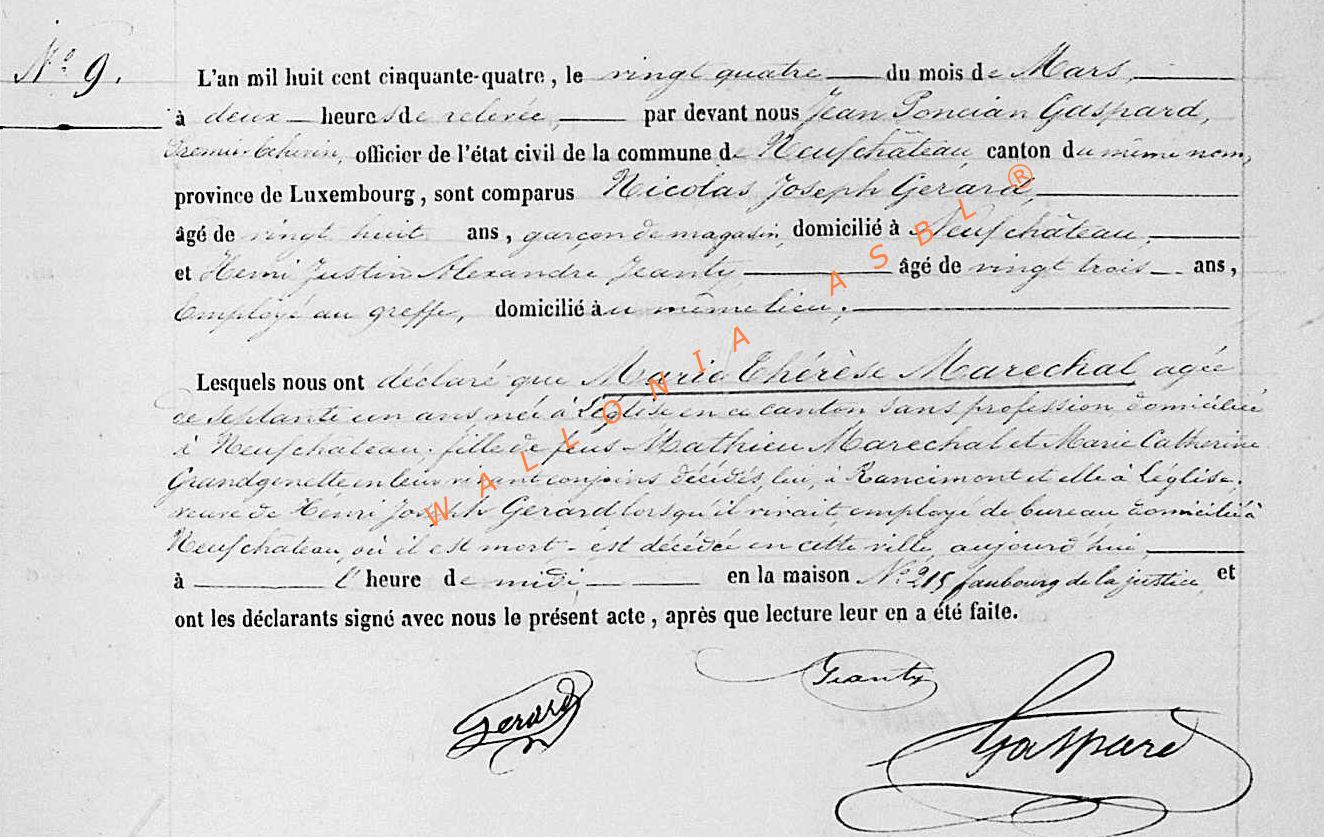 N.o 9.
L'an mil huit cent cinquante-quatre, le vingt quatre du mois de Mars,
à deux heures de relevée, par devant nous Jean Poncian Gaspard,
Premier Echevin, officier de l'état civil de la commune de Neufchâteau canton du même nom,
province de Luxembourg, sont comparus Nicolas Joseph Gerard,
âgé de vingt huit ans, garçon de magasin, domicilié à Neufchâteau,
et Henri Justin Alexandre Jeanty âgé de vingt trois ans,
Employé au greffe, domicilié au même lieu;
Lesquels nous ont déclaré que Marie Thérèse Marechal agée
de septante un ans née à Léglise en ce canton sans profession domiciliée
à Neufchateau, fille de feus Mathieu Marechal et Marie Catherine
Grandgenette en leur vivant conjoins décédés, lui, à Rancimont et elle à Léglise,
veuve de Henri Joseph Gerard, lorsqu'il vivait, employé de bureau domicilié à
Neufchateau, où il est mort - est décédée en cette ville, aujourd'hui,
à l'heure de midi, en la maison N.o 215 faubourg de la justice, et
ont les déclarants signé avec nous le présent acte, après que lecture leur en a été faite.
Jeanty
Gerard
Gaspard
WALLONIA ASBL ®